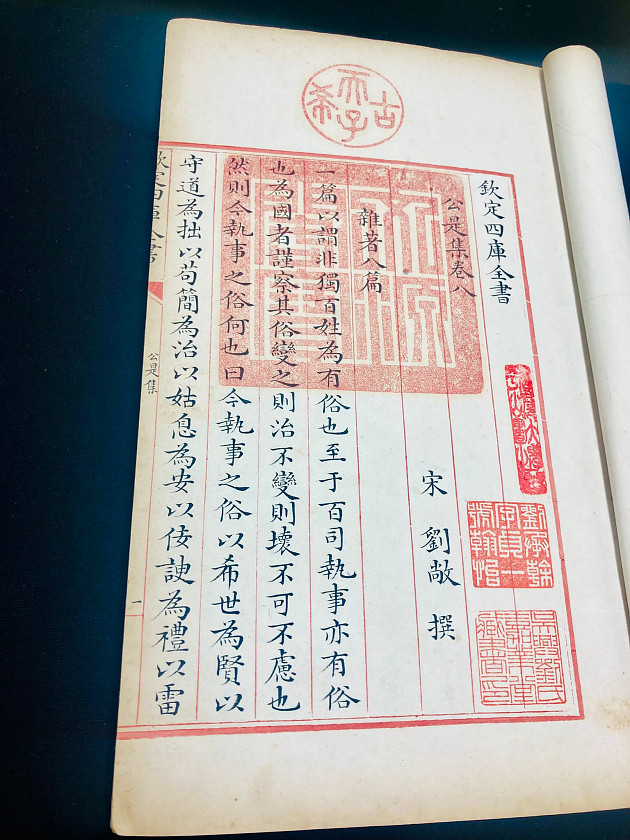 古希天子
欽定四庫全書
劉承幹字貞一號翰怡
吳興劉氏嘉業堂藏書印
公是集卷八
宋 劉敞 撰
雜著八篇
一篇以謂非獨百姓為有俗也至于百司執事亦有俗
也為國者謹察其俗變之則治不變則壞不可不慮也
然則今執事之俗何也曰今執事之俗以希世為賢以
守道為拙以苟簡為治以姑息為安以倿諛為禮以雷
欽定四庫全書
公是集
一